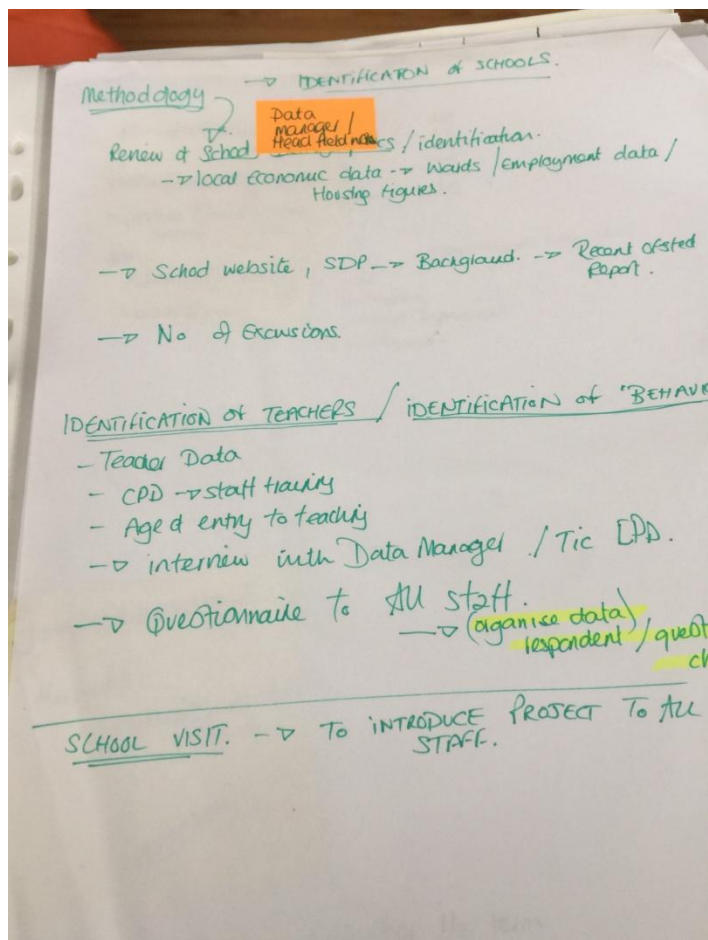 Methodology → IDENTIFICATION of SCHOOLS.
Data
manager /
Head field notes
Review of School / identification.
→ local economic data → Wards / Employment data /
Housing figures.
→ School website, SDP → Background. → Recent ofsted
Report.
→ No of Exclusions.
IDENTIFICATION of TEACHERS / IDENTIFICATION of "BEHAV
- Teacher Data
- CPD → staff training
- Age of entry to teaching
→ interview with Data Manager / Tic CPD.
→ Questionnaire to All staff.
→ (organise data)
respondent /
SCHOOL VISIT. → To INTRODUCE PROJECT To All
STAFF.